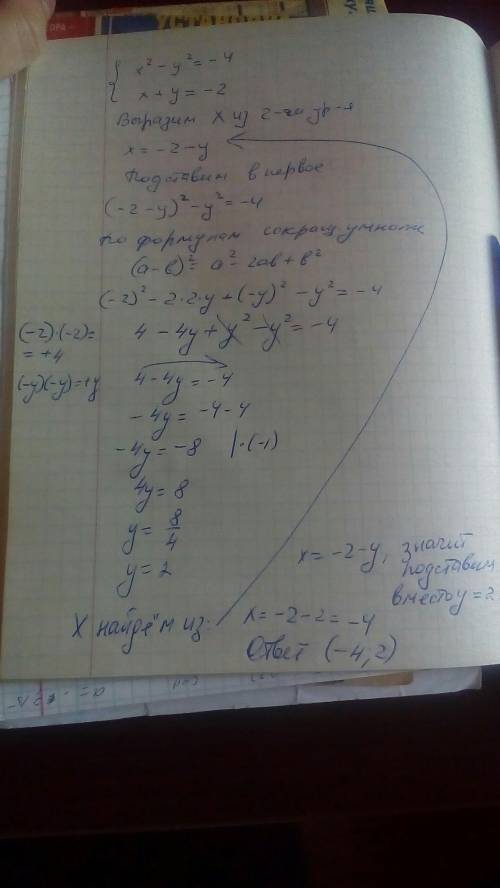 { x² - y² = -4
x + y = -2
Выразим X из 2-го ур-я
x = -2 - y
Подставим в первое
(-2 - y)² - y² = -4
по формулам сокращ. умнож
(a-в)² = a² - 2aв + в²
(-2)² - 2·2·y + (-y)² - y² = -4
(-2)·(-2) =
= +4
4 - 4y + y² - y² = -4
(-y)(-y) = +y
4 - 4y = -4
-4y = -4 - 4
-4y = -8 |·(-1)
4y = 8
y = 8/4
y = 2
x = -2 - y, значит
подставим
вместо y = 2
X найдём из:
x = -2 - 2 = -4
Ответ (-4, 2)